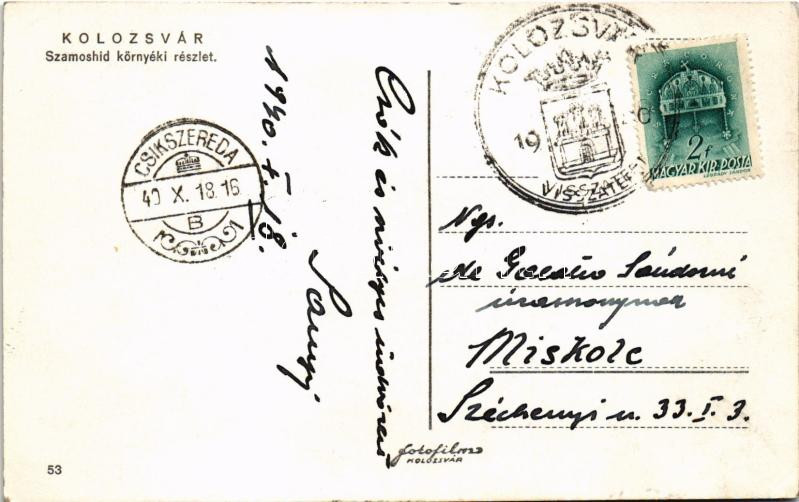 KOLOZSVÁR
Szamoshíd környéki részlet.
CSIKSZEREDA
40 X. 18. 16
B
1940. X. 18.
Csók és szívélyes üdvözlet
Sanyi
KOLOZSVÁR
19
VISSZATÉRT
2f
MAGYAR KIR. POSTA
Ngs.
dr Sándorné
úrasszonynak
Miskolc
Széchenyi u. 33. I. 3.
fotofilm
KOLOZSVÁR
53